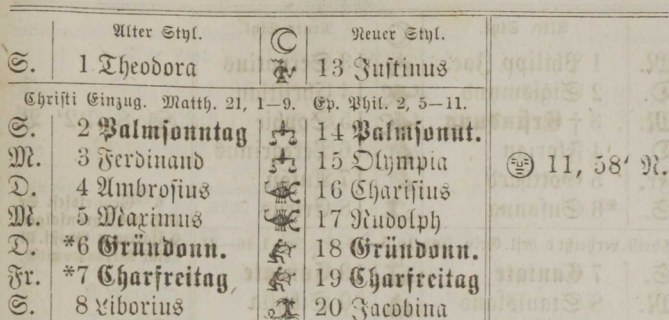 Alter Styl. Neuer Styl.
S. 1 Theodora 13 Justinus
Christi Einzug. Matth. 21, 1–9. Ep. Phil. 2, 5–11.
S. 2 Palmsonntag 14 Palmsonnt.
M. 3 Ferdinand 15 Olympia 11, 58' N.
D. 4 Ambrosius 16 Charisius
M. 5 Maximus 17 Rudolph
D. *6 Gründonn. 18 Gründonn.
Fr. *7 Charfreitag 19 Charfreitag
S. 8 Liborius 20 Jacobina